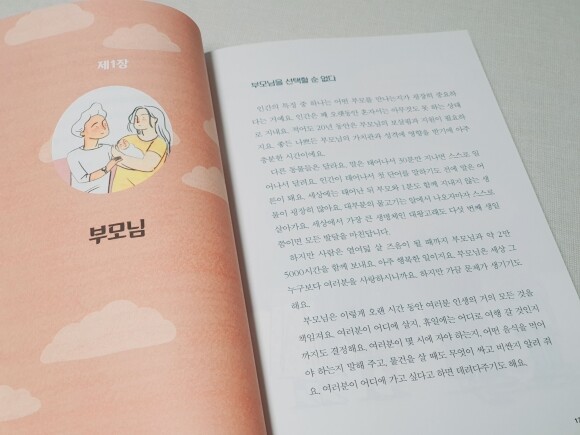 제1장
부모님
부모님을 선택할 순 없다
인간의 특징 중 하나는 어떤 부모를 만나는지가 굉장히 중요하
다는 거예요. 인간은 꽤 오랫동안 혼자서는 아무것도 못 하는 상태
로 지내요. 적어도 20년 동안은 부모님의 보살핌과 지원이 필요하
지요. 좋든 나쁘든 부모님의 가치관과 성격에 영향을 받기에 아주
충분한 시간이에요.
다른 동물들은 달라요. 말은 태어나서 30분만 지나면 스스로 일
어나서 달려요. 인간이 태어나서 첫 단어를 말하기도 전에 말은 어
른이 돼요. 세상에는 태어난 뒤 부모와 1분도 함께 지내지 않는 생
물이 굉장히 많아요. 대부분의 물고기는 알에서 나오자마자 스스로
살아가요. 세상에서 가장 큰 생명체인 대왕고래도 다섯 번째 생일
쯤이면 모든 발달을 마친답니다.
하지만 사람은 열여덟 살 즈음이 될 때까지 부모님과 약 2만
5000시간을 함께 보내요. 아주 행복한 일이지요. 부모님은 세상 그
누구보다 여러분을 사랑하시니까요. 하지만 가끔 문제가 생기기도
해요.
부모님은 이렇게 오랜 시간 동안 여러분 인생의 거의 모든 것을
책임져요. 여러분이 어디에 살지, 휴일에는 어디로 여행 갈 것인지
까지도 결정해요. 여러분이 몇 시에 자야 하는지, 어떤 음식을 먹어
야 하는지 말해 주고, 물건을 살 때도 무엇이 싸고 비싼지 알려 줘
요. 여러분이 어디에 가고 싶다고 하면 데려다주기도 해요.